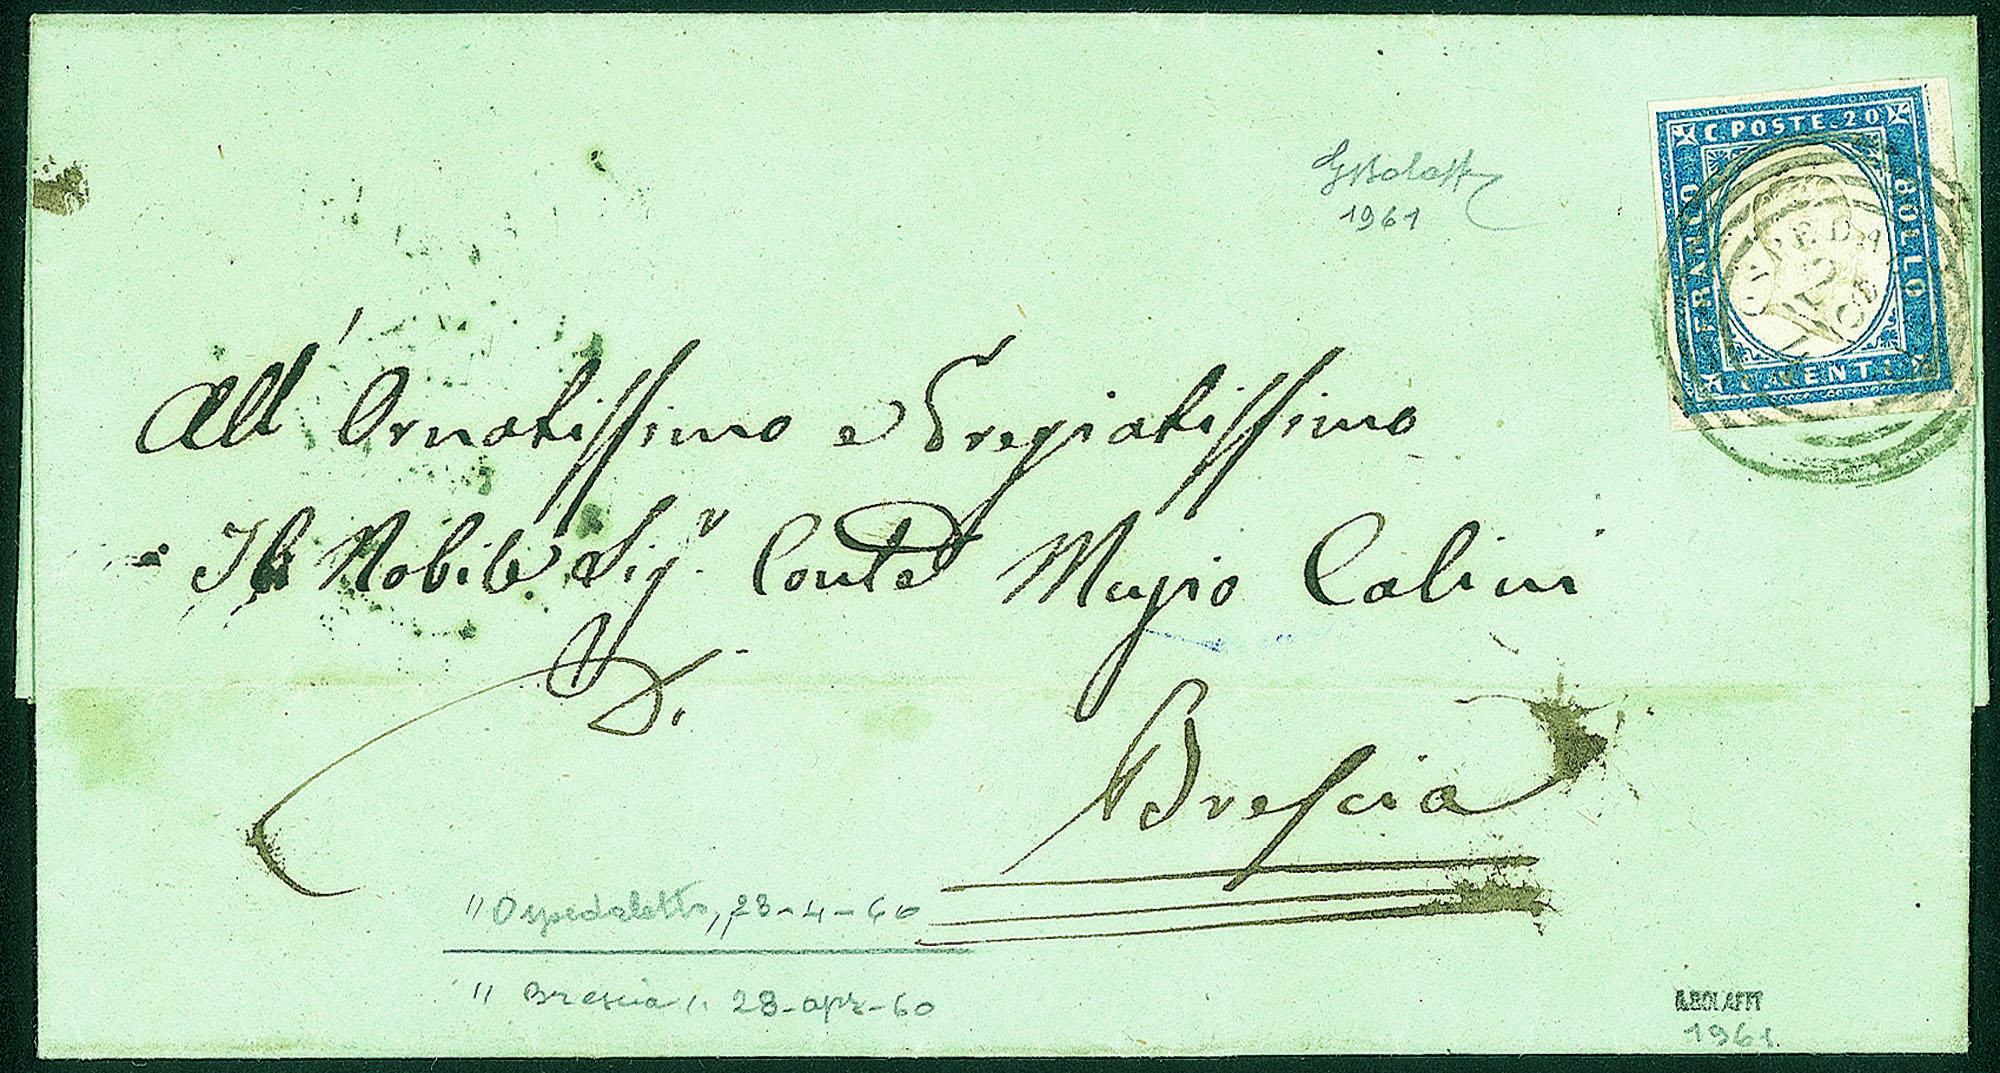 C. POSTE. 20
FRANCO
BOLLO
OSPEDA
GBolaffi
1961
All' Ornatissimo e Pregiatissimo
Il Nobile Sigr. Conte Muzio Calini
Brescia
" Ospedaletto, 28-4-60
" Brescia ". 28-apr-60
A.BOLAFFI
1961